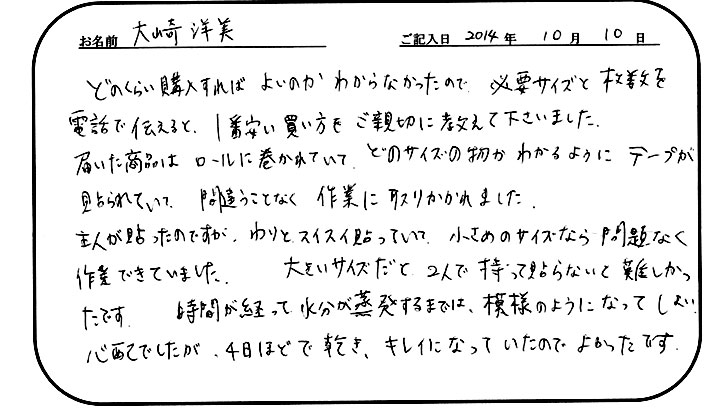 お名前 大崎 洋美 ご記入日 2014年 10月 10日
どのくらい購入すれば よいのか わからなかったので 必要サイズと 枚数を
電話で伝えると、1番安い買い方を ご親切に教えて下さいました。
届いた商品は ロールに巻かれていて、どのサイズの物か わかるように テープが
貼られていて 間違うことなく 作業に取りかかれました。
主人が貼ったのですが、わりと スイスイ貼っていて 小さめのサイズなら 問題なく
作業できていました。 大きいサイズだと 2人で 持って貼らないと 難しかっ
たです。 時間が経って 水分が蒸発するまでは、模様のようになって しまい
心配でしたが、4日ほどで 乾き、キレイになって いたので よかったです。